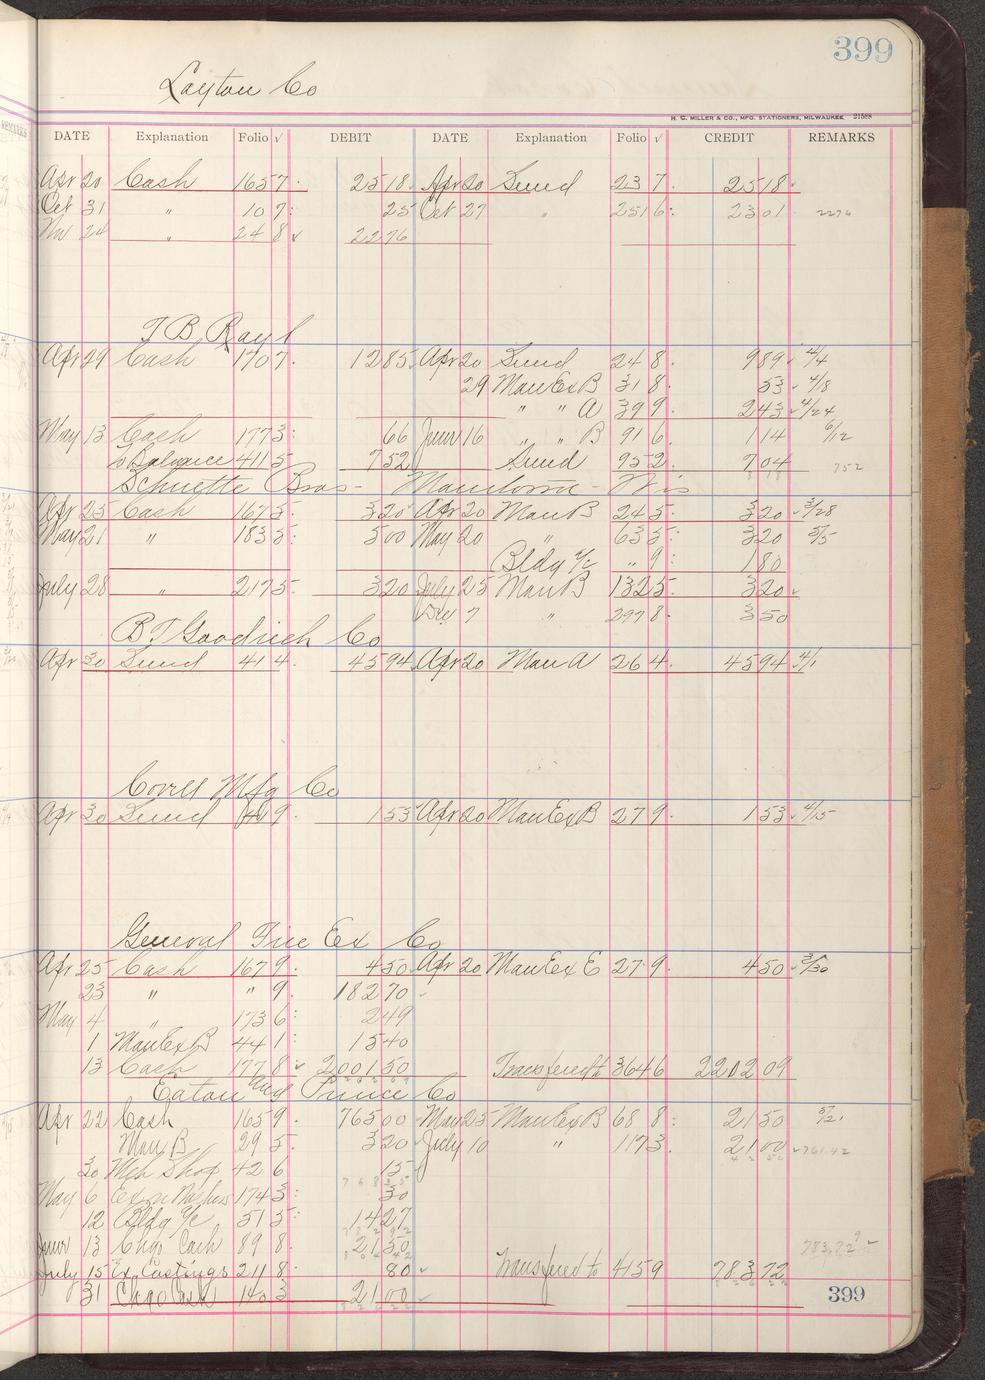 399
Layton Co
H. G. MILLER & CO., MFG. STATIONERS, MILWAUKEE 21588
DATE Explanation Folio √ DEBIT DATE Explanation Folio √ CREDIT REMARKS
Apr 20 Cash 165 7 25 18 Apr 20 Sund 23 7 25 18
Oct 31 " 10 7 25 Oct 27 " 251 6 23 01 2276
Nov 24 " 24 8 22 76
T B Rayl
Apr 29 Cash 170 7 12 85 Apr 20 Sund 24 8 9 89 4/4
29 Man Ex B 31 8 53 4/18
" " A 39 9 2 43 4/24
May 13 Cash 177 3 66 June 16 " " B 91 6 1 14 6/12
to Balance 411 5 7 52 Sund 95 2 7 04 752
Schuette Bros - Manitowoc - Wis
Apr 25 Cash 167 5 3 20 Apr 20 Man B 24 5 3 20 3/28
May 21 " 183 5 5 00 May 20 " 63 5 3 20 5/5
Bldg a/c " 9 1 80
July 28 " 217 5 3 20 July 25 Man B 132 5 3 20
Dec 7 " 297 8 3 50
B F Goodrich Co
Apr 30 Sund 41 4 45 94 Apr 20 Man A 26 4 45 94 4/1
Covell Mfg Co
Apr 30 Sund 40 9 1 53 Apr 20 Man Ex B 27 9 1 53 4/15
General Fire Ex Co
Apr 25 Cash 167 9 4 50 Apr 20 Man Ex E 27 9 4 50 3/30
23 " " 9 182 70
May 4 " 173 6 2 49
1 Man Ex B 44 1 15 40
13 Cash 177 8 2001 50 Transfered to 364 6 2202 09
Eaton and Prince Co
Apr 22 Cash 165 9 765 00 May 25 Man Ex B 68 8 21 50 5/21
Man B 29 5 3 20 July 10 " 117 3 21 00 761.42
30 Mch Shop 42 6 15
May 6 174 3 30
12 Bldg a/c 51 5 14 27
June 13 Chgo Cash 89 8 21 50 783.72
July 15 Ex Castings 211 8 80 Transfered to 415 9 783 72
31 Chgo Cash 140 3 21 00
399